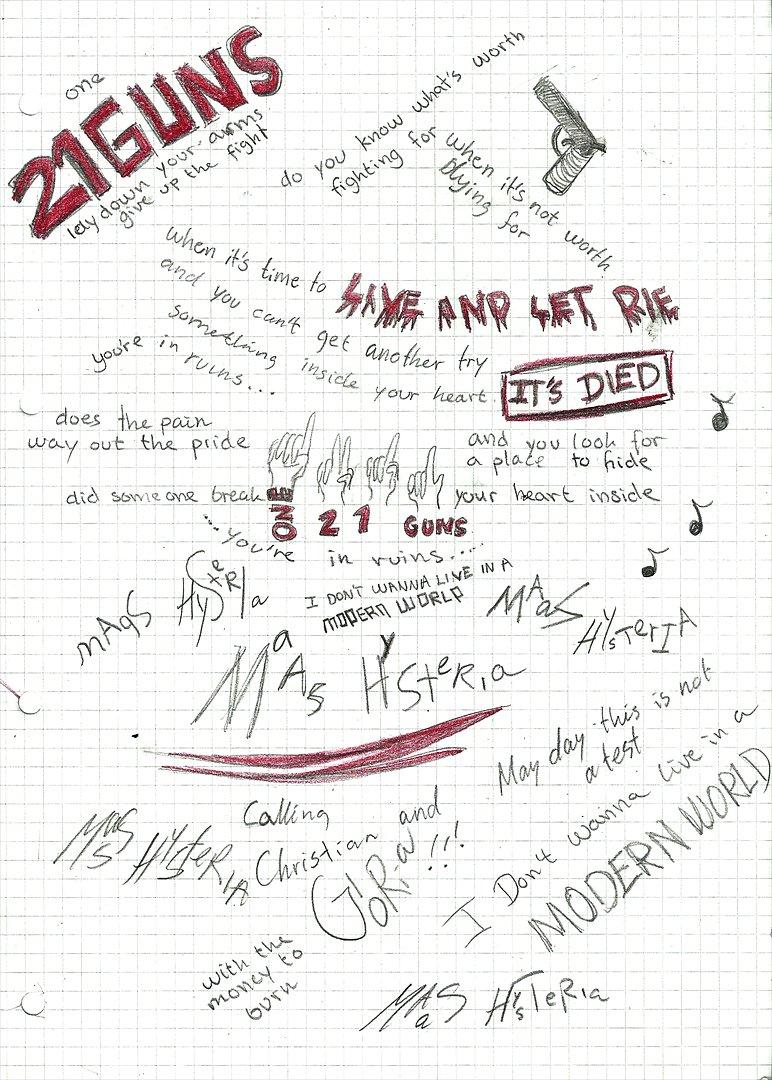 one
21 GUNS
lay down your arms
give up the fight
do you know what's worth
fighting for when it's not worth
dying for
when it's time to LIVE AND LET DIE
and you can't get another try
something inside your heart IT'S DIED
you're in ruins...
does the pain
way out the pride
and you look for
a place to hide
did someone break your heart inside
ONE 21 GUNS
...you're in ruins....
MAqS HYSteRIa
I DON'T WANNA LIVE IN A
MODERN WORLD
MAaS HYsTerIA
MaAs HYSteRia
May day this is not
a test
I Don't wanna live in a
MODERN WORLD
MasS HYSTeRIA
Calling
Christian and
GloRia!!!
with the
money to
burn
MAaS HYsTeRia